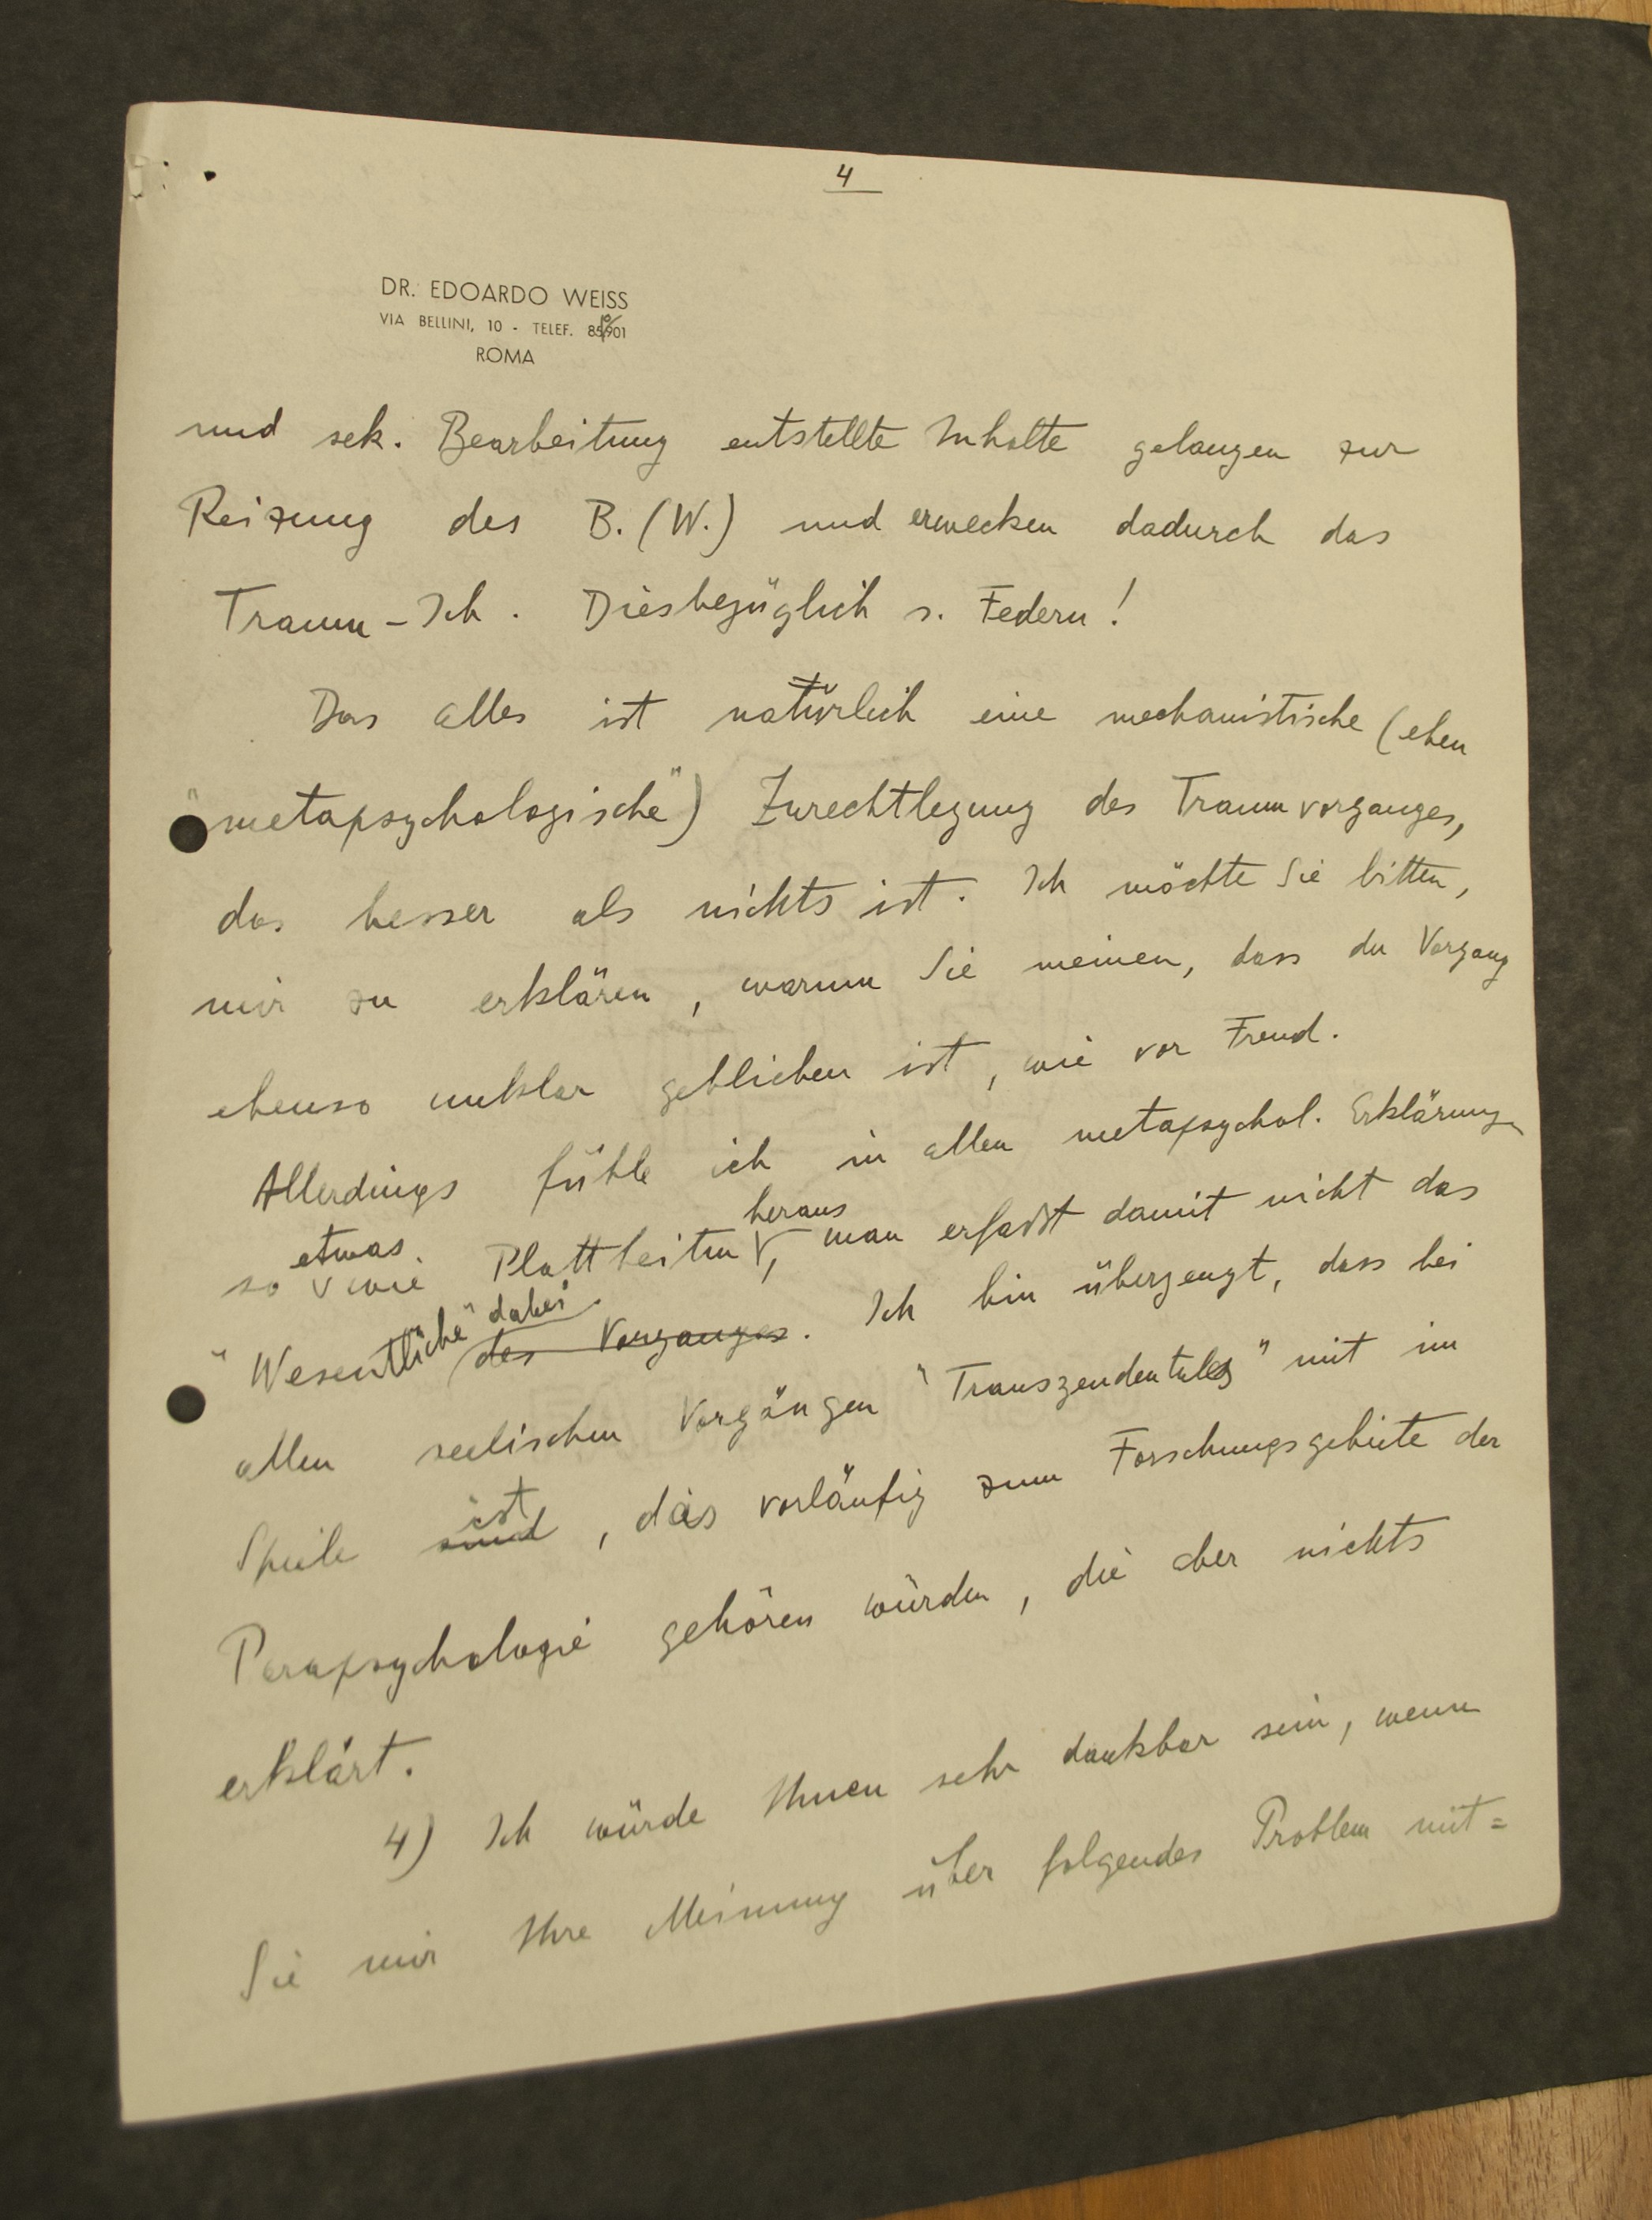 4
DR. EDOARDO WEISS
VIA BELLINI, 10 - TELEF. 85901
ROMA
und sek. Bearbeitung entstellte Inhalte gelangen zur
Reizung des B. (W.) und erwecken dadurch das
Traum-Ich. Diesbezüglich s. Federn!
Das alles ist natürlich eine mechanistische (eben
"metapsychologische") Zurechtlegung des Traumvorganges,
das besser als nichts ist. Ich möchte Sie bitten,
mir zu erklären, warum Sie meinen, dass der Vorgang
ebenso unklar geblieben ist, wie vor Freud.
Allerdings fühle ich in allen metapsychol. Erklärungen
so etwas wie Plattheiten heraus, man erfasst damit nicht das
"Wesentliche" dabei. des Vorganges. Ich bin überzeugt, dass bei
allen seelischen Vorgängen "Transzendentales" mit im
Spiele sind ist, das vorläufig zum Forschungsgebiete der
Parapsychologie gehören würden, die aber nichts
erklärt.
4) Ich würde Ihnen sehr dankbar sein, wenn
Sie mir Ihre Meinung über folgendes Problem mit=